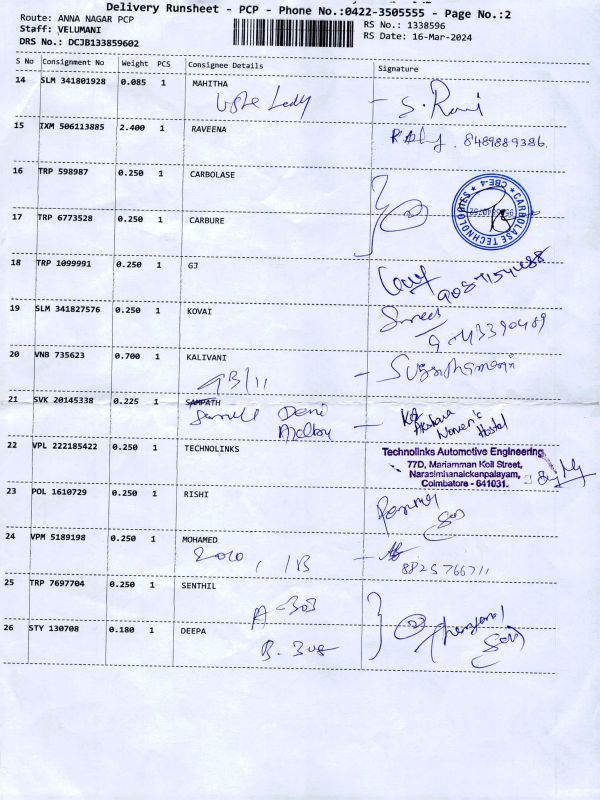 Delivery Runsheet - PCP - Phone No.:0422-3505555 - Page No.:2
Route: ANNA NAGAR PCP
RS No.: 1338596
Staff: VELUMANI
RS Date: 16-Mar-2024
DRS No.: DCJB133859602
S No Consignment No Weight PCS Consignee Details Signature
14 SLM 341801928 0.085 1 MAHITHA
S. Rani
15 IXM 506113885 2.400 1 RAVEENA
8489889386.
16 TRP 598987 0.250 1 CARBOLASE
CARBOLASE TECHNOLOGIES ★ CBE-4 ★
17 TRP 6773528 0.250 1 CARBURE
18 TRP 1099991 0.250 1 GJ
19 SLM 341827576 0.250 1 KOVAI
20 VNB 735623 0.700 1 KALIVANI
21 SVK 20145338 0.225 1 SAMPATH
Akshara
Women's
Hostel
22 VPL 222185422 0.250 1 TECHNOLINKS
Technolinks Automotive Engineering
77D, Mariamman Koil Street,
Narasimhanaickenpalayam,
Coimbatore - 641031.
23 POL 1610729 0.250 1 RISHI
24 VPM 5189198 0.250 1 MOHAMED
25 TRP 7697704 0.250 1 SENTHIL
A - 303
26 STY 130708 0.180 1 DEEPA